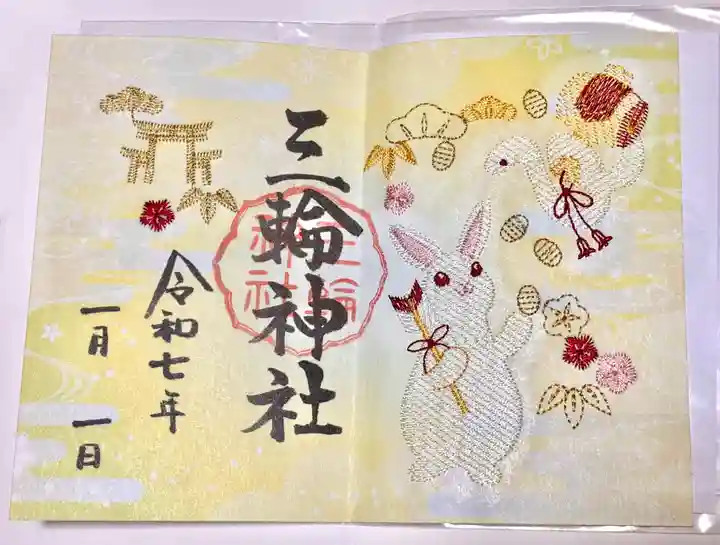 三輪神社
三輪神社
令和七年
一月一日